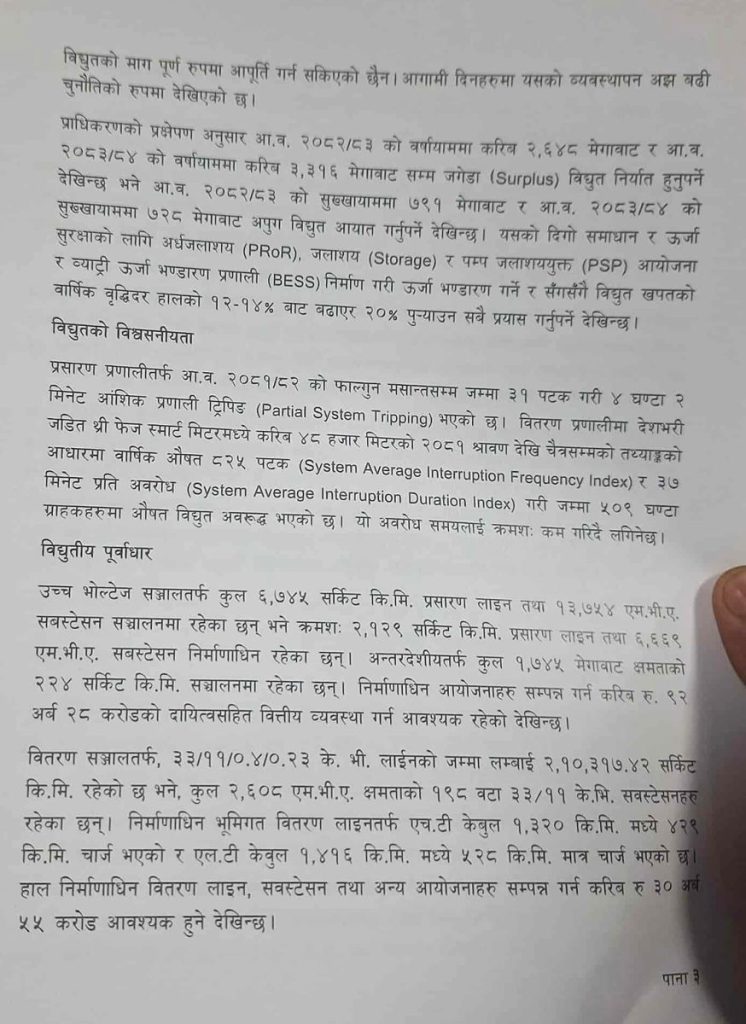 विद्युतको माग पूर्ण रुपमा आपूर्ति गर्न सकिएको छैन। आगामी दिनहरुमा यसको व्यवस्थापन अझ बढी
चुनौतिको रुपमा देखिएको छ।
प्राधिकरणको प्रक्षेपण अनुसार आ.व. २०८२/८३ को वर्षायाममा करिब २,६४८ मेगावाट र आ.व.
२०८३/८४ को वर्षायाममा करिब ३,३१६ मेगावाट सम्म जगेडा (Surplus) विद्युत निर्यात हुनुपर्ने
देखिन्छ भने आ.व. २०८२/८३ को सुख्खायाममा ७९१ मेगावाट र आ.व. २०८३/८४ को
सुख्खायाममा ७२८ मेगावाट अपुग विद्युत आयात गर्नुपर्ने देखिन्छ। यसको दिगो समाधान र ऊर्जा
सुरक्षाको लागि अर्धजलाशय (PRoR), जलाशय (Storage) र पम्प जलाशययुक्त (PSP) आयोजना
र व्याट्री ऊर्जा भण्डारण प्रणाली (BESS) निर्माण गरी ऊर्जा भण्डारण गर्ने र सँगसँगै विद्युत खपतको
वार्षिक वृद्धिदर हालको १२-१४% बाट बढाएर २०% पुऱ्याउन सबै प्रयास गर्नुपर्ने देखिन्छ।
विद्युतको विश्वसनीयता
प्रसारण प्रणालीतर्फ आ.व. २०८१/८२ को फाल्गुन मसान्तसम्म जम्मा ३१ पटक गरी ४ घण्टा २
मिनेट आंशिक प्रणाली ट्रिपिङ (Partial System Tripping) भएको छ। वितरण प्रणालीमा देशभरी
जडित थ्री फेज स्मार्ट मिटरमध्ये करिब ४८ हजार मिटरको २०८१ श्रावण देखि चैत्रसम्मको तथ्याङ्कको
आधारमा वार्षिक औषत ८२५ पटक (System Average Interruption Frequency Index) र ३७
मिनेट प्रति अवरोध (System Average Interruption Duration Index) गरी जम्मा ५०९ घण्टा
ग्राहकहरुमा औषत विद्युत अवरूद्ध भएको छ। यो अवरोध समयलाई क्रमशः कम गरिदै लगिनेछ।
विद्युतीय पूर्वाधार
उच्च भोल्टेज सञ्जालतर्फ कुल ६,७४५ सर्किट कि.मि. प्रसारण लाइन तथा १३,७५४ एम.भी.ए.
सबस्टेसन सञ्चालनमा रहेका छन् भने क्रमशः २,१२९ सर्किट कि.मि. प्रसारण लाइन तथा ६,६६९
एम.भी.ए. सबस्टेसन निर्माणाधिन रहेका छन्। अन्तरदेशीयतर्फ कुल १,७४५ मेगावाट क्षमताको
२२४ सर्किट कि.मि. सञ्चालनमा रहेका छन्। निर्माणाधिन आयोजनाहरु सम्पन्न गर्न करिब रु. ९२
अर्ब २८ करोडको दायित्वसहित वित्तीय व्यवस्था गर्न आवश्यक रहेको देखिन्छ।
वितरण सञ्जालतर्फ, ३३/११/०.४/०.२३ के. भी. लाईनको जम्मा लम्बाई २,१०,३१७.४२ सर्किट
कि.मि. रहेको छ भने, कुल २,६०८ एम.भी.ए. क्षमताको १९८ वटा ३३/११ के.भि. सवस्टेसनहरु
रहेका छन्। निर्माणाधिन भूमिगत वितरण लाइनतर्फ एच.टी केबुल १,३२० कि.मि. मध्ये ४२९
कि.मि. चार्ज भएको र एल.टी केवुल १,४१६ कि.मि. मध्ये ५२८ कि.मि. मात्र चार्ज भएको छ।
हाल निर्माणाधिन वितरण लाइन, सवस्टेसन तथा अन्य आयोजनाहरु सम्पन्न गर्न करिब रु ३० अर्ब
५५ करोड आवश्यक हुने देखिन्छ।
पाना ३